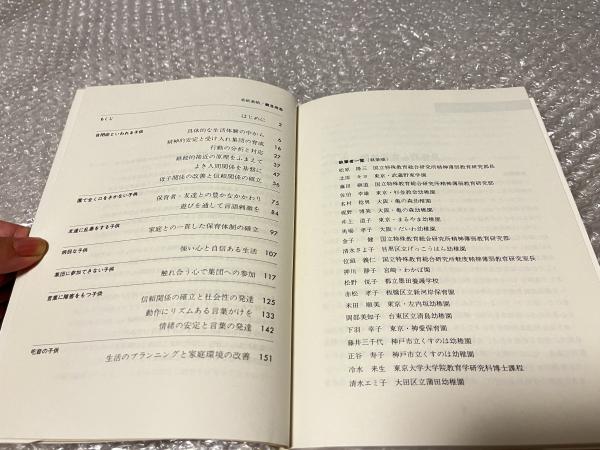 もくじ
はじめに 2
自閉症といわれる子供
具体的な生活体験の中から 6
精神的安定と受け入れ集団の育成 16
行動の分析と対応 27
継続的接近の原理をふまえて 37
よき人間関係を基盤に 47
母子関係の改善と信頼関係の確立 56
園で全く口をきかない子供
保育者・友達との豊かなかかわり 75
遊びを通して言語刺激を 84
友達に乱暴をする子供
家庭との一貫した保育体制の確立 97
病弱な子供
強い心と自信ある生活 107
集団に参加できない子供
触れ合う心で集団への参加 117
言葉に障害をもつ子供
信頼関係の確立と社会性の発達 125
動作にリズムある言葉かけを 133
情緒の安定と言葉の発達 142
宅音の子供
生活のプランニングと家庭環境の改善 151
執筆者一覧(執筆順)
松原 隆三 国立特殊教育総合研究所精神薄弱教育研究部長
北田 キヨ 東京・武蔵野東学園
藤田 継道 国立特殊教育総合研究所精神薄弱教育研究部
佐伯 幸雄 東京・杉並教会幼稚園
木村 拾男 大阪・亀の森幼稚園
梶野 博美 大阪・亀の森幼稚園
井上 道子 東京・まるやま幼稚園
馬場 孝子 大阪・だいわ幼稚園
金子 健 国立特殊教育総合研究所精神薄弱教育研究部
清水さよ子 目黒区立げっこうはら幼稚園
位頭 義仁 国立特殊教育総合研究所軽度精神薄弱教育研究室長
柳川 静子 宮崎・わかば園
松野 悦子 都立墨田養護学校
赤松 孝子 板橋区立新河岸保育園
米田 順美 東京・左内坂幼稚園
岡部美知子 台東区立清島幼稚園
下羽 幸子 東京・神愛保育園
藤井三千代 神戸市立くすのは幼稚園
正谷 寿子 神戸市立くすのは幼稚園
冷水 来生 東京大学大学院教育学研究科博士課程
清水エミ子 大田区立蒲田幼稚園